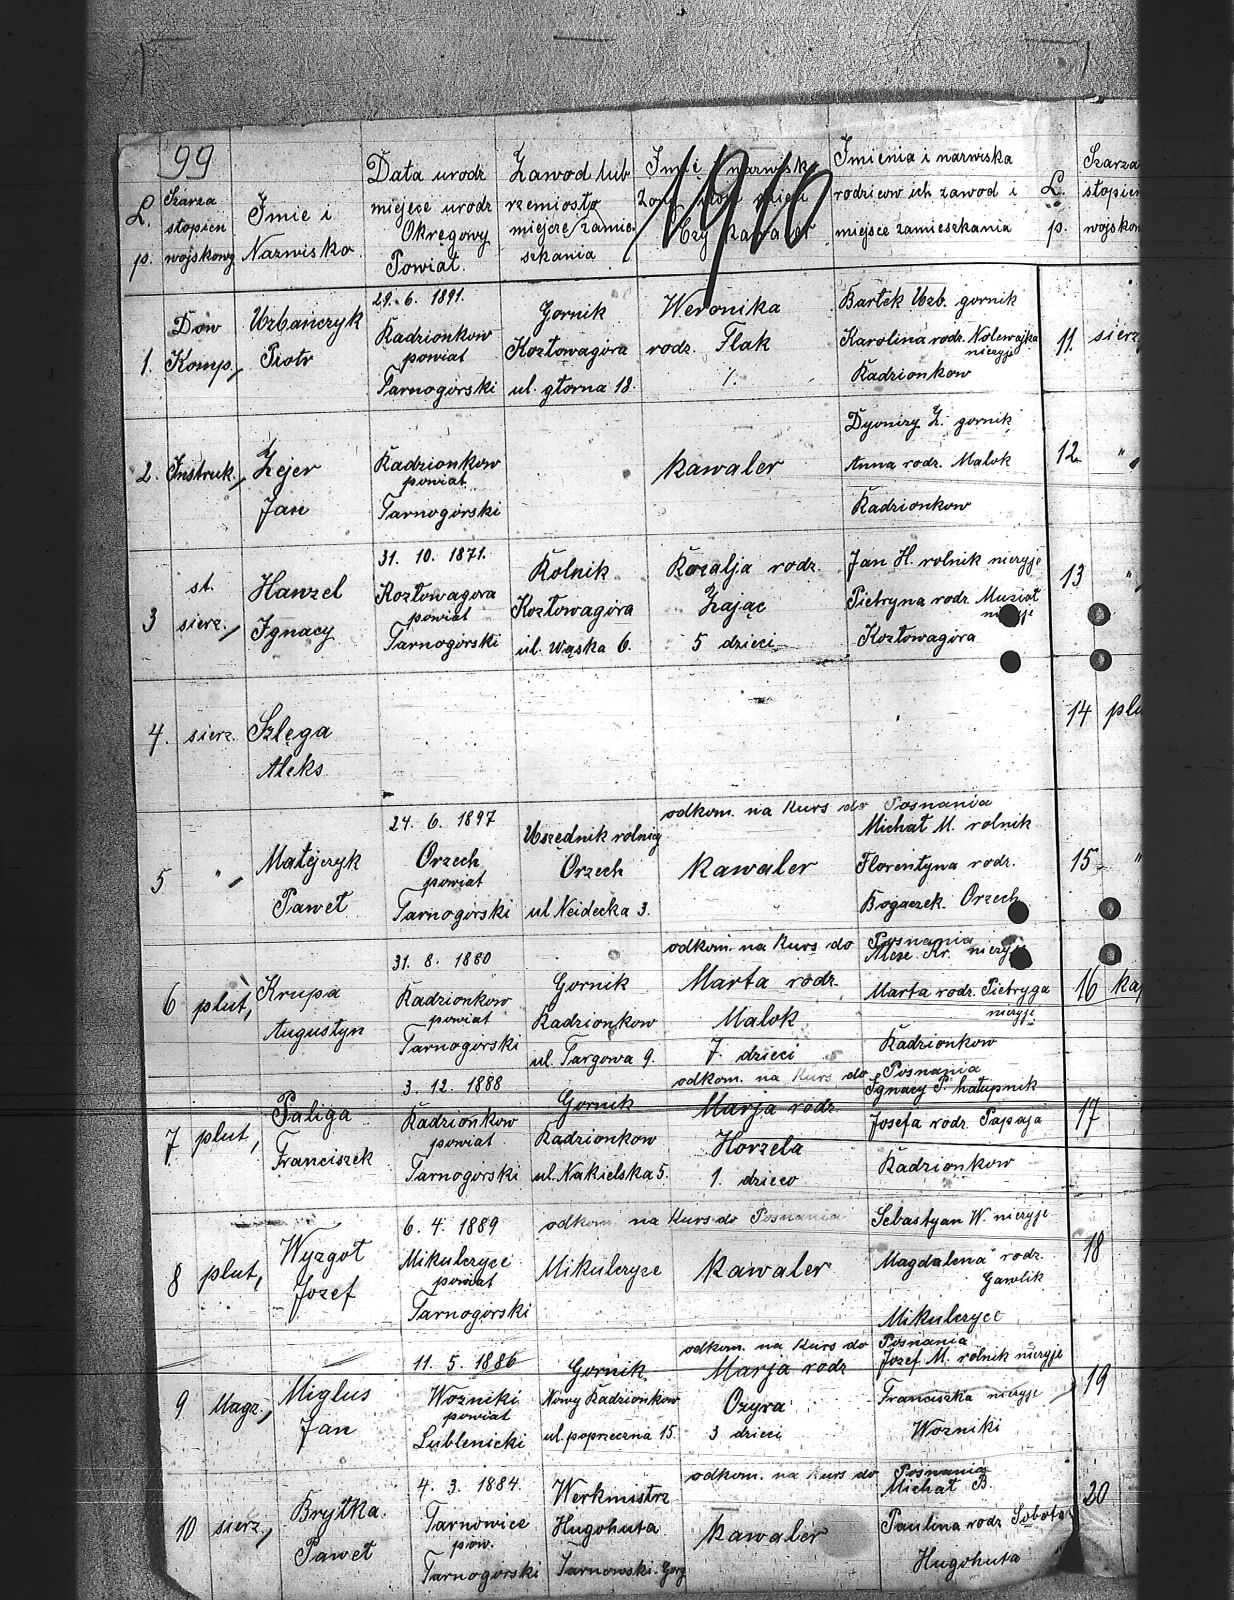 99
1910
L. p.
Szarza stopien wojskowy
Imie i Nazwisko
Data urodz miejsce urodz Okręgowy Powiat.
Zawod lub rzemiosto miejsce zamie. szkania
Imie i nazwisk
Czy kawaler
Imienia i nazwiska rodzicow ich zawod i miejsce zamieszkania
L. p.
Szarza stopien wojskow
29. 6. 1891.
Bartek Urb. gornik
Dow
Urbańczyk
Gornik
Weronika
1. Komp,
Piotr
Radzionkow
Kozłowagóra
rodz. Flak
Karolina rodz.
11. sierz
powiat
nieżyje
Tarnogórski
ul. głorna 18.
1.
Radzionkow
Dyonizy Z. gornik
2. Instruk.,
Zejer
Radzionkow
kawaler
Anna rodz. Malok
12. "
powiat
Jan
Tarnogórski
Radzionkow
31. 10. 1871.
Rolnik
Rozalja rodz.
Jan H. rolnik nieżyje
st.
Hanzel
Kozłowagóra
Kozłowagóra
Zając
Pietryna rodz. Muziot
13 "
3 sierz.,
Ignacy
powiat
Tarnogórski
ul. Wąska 6.
5 dzieci
Kozłowagóra
4. sierz.
Szlęga
14 plu
Aleks.
odkom. na kurs do Posnania
24. 6. 1897
Uszednik rolnicy
Michat M. rolnik
5 "
Matejczyk
Orzech
Orzech
kawaler
Florentyna rodz.
15. "
powiat
Pawet
Tarnogórski
ul Neidecka 3.
Bogaczek. Orzech
odkom. na kurs do Posnania
31. 8. 1880
Gornik
Marta rodz.
Kr. nieżyje
6 plut,
Krupa
Radzionkow
Radzionkow
Malok
Marta rodz. Pietryga
16 kap
powiat
nieżyje
Augustyn
Tarnogorski
ul. Targowa 9.
7. dzieci
Radzionkow
odkom. na kurs do Posnania
3. 12. 1888
Gornik
Marja rodz.
Ignacy P. hatupnik
7. plut,
Paliga
Radzionkow
Radzionkow
Horzela
Josefa rodz. Papaja
17
powiat
Franciszek
Tarnogórski
ul. Nakielska 5.
1. dzieco
Radzionkow
odkom. na kurs do Posnania
6. 4. 1889
Sebastyan W. nieżyje
8 plut,
Wyzgot
Mikulczyce
Mikulczyce
kawaler
Magdalena rodz.
18
powiat
Gawlik
Jozef
Tarnogorski
Mikulczyce
odkom. na kurs do Posnania
11. 5. 1886
Gornik
Marja rodz
Jozef M. rolnik nieżyje
9 Magz.,
Miglus
Wozniki
Nowy Radzionkow
Ozyra
Franciszka nieżyje
19
powiat
Jan
Lublenicki
ul. poprzeczna 15.
3 dzieci
Wozniki
odkom. na kurs do Posnania
4. 3. 1884
Werkmistrz
Michat B.
10 sierz,
Brytka.
Tarnowice
Hugohuta
kawaler
Paulina rodz Sobota
20
pow.
Pawet
Tarnogórski
Tarnowski. Gorz
Hugohuta